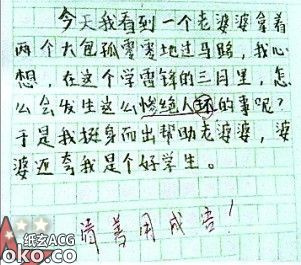 今天我看到一个老婆婆拿着
两个大包孤零零地过马路，我心
想，在这个学雷锋的三月里，怎
么会发生这么惨绝人环的事呢？
于是我挺身而出帮助老婆婆，婆
婆还夸我是个好学生。
请善用成语！
纸玄ACG
oko.co